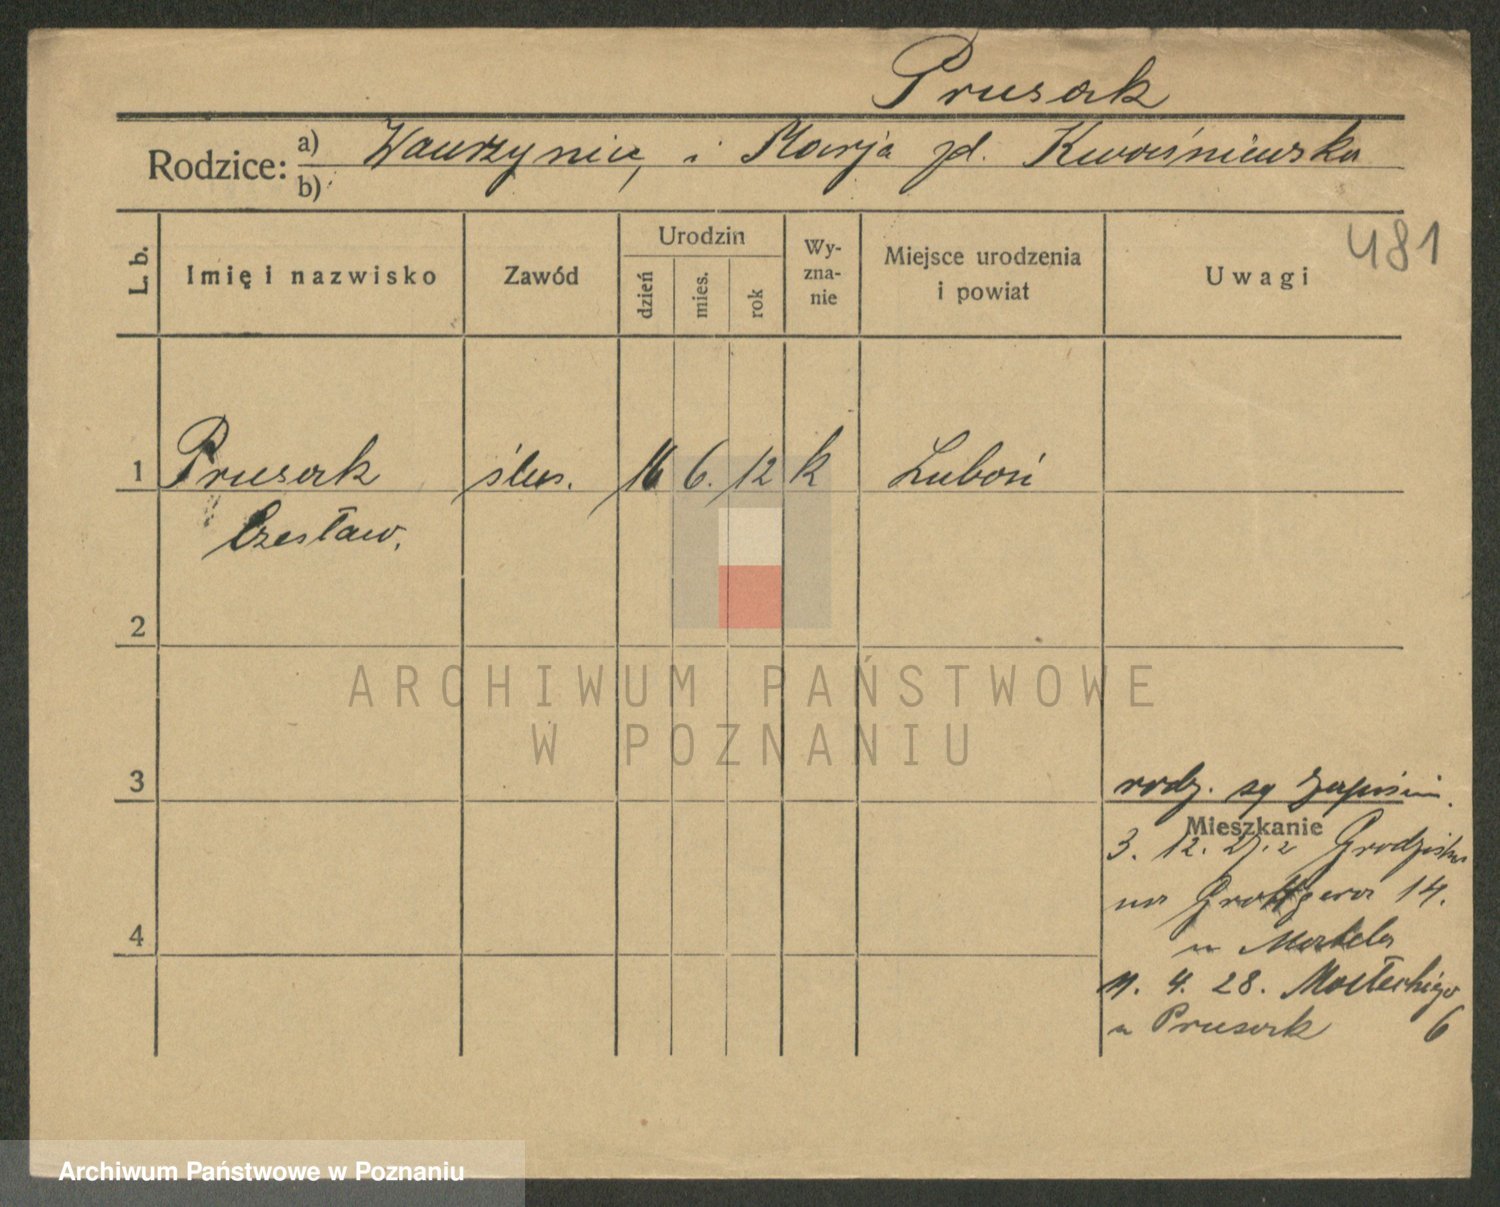 Prusak
Rodzice: a) Wawrzyniec i Marja zd. Kwaśniewska
b)
481
L. b.
Imię i nazwisko
Zawód
Urodzin
dzień
mies.
rok
Wy-
zna-
nie
Miejsce urodzenia
i powiat
Uwagi
1 Prusak ślus. 16 6. 12 k Luboń
Czesław.
2
ARCHIWUM PAŃSTWOWE
W POZNANIU
3
rodz. są
Mieszkanie
3. 12. 27. z Grodziska
na Grottgera 14.
4
u
11. 4. 28. 6
u Prusak
Archiwum Państwowe w Poznaniu